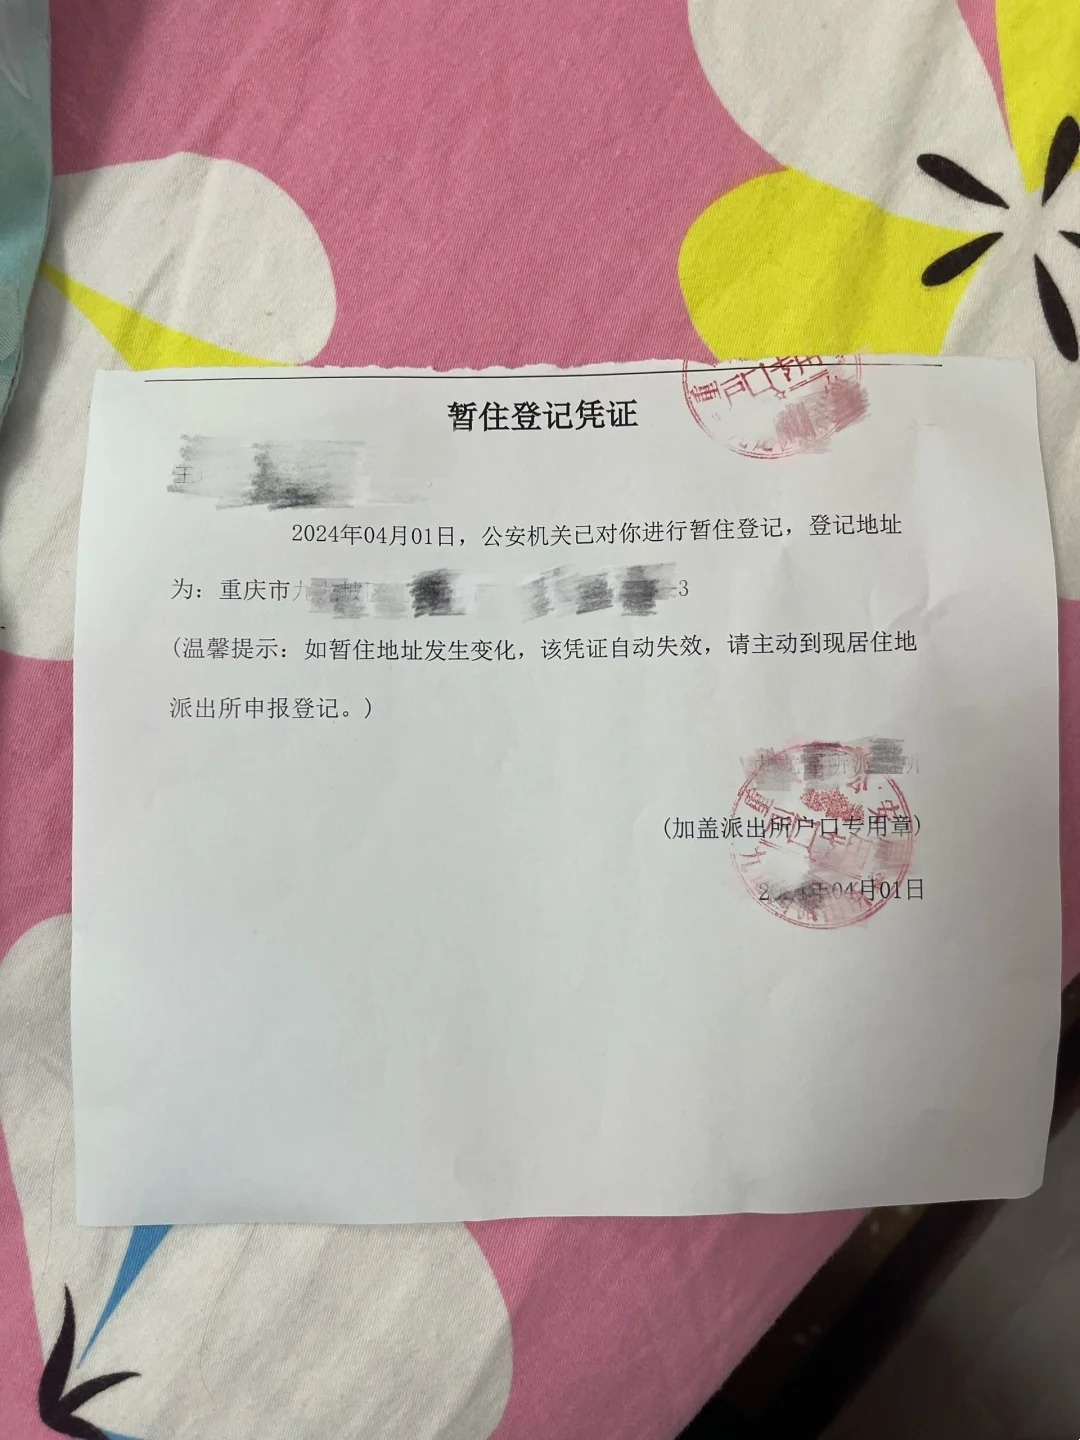 户口专用
暂住登记凭证
2024年04月01日，公安机关已对你进行暂住登记，登记地址
为：重庆市
-3
(温馨提示：如暂住地址发生变化，该凭证自动失效，请主动到现居住地
派出所申报登记。)
(加盖派出所户口专用章)
2024年04月01日